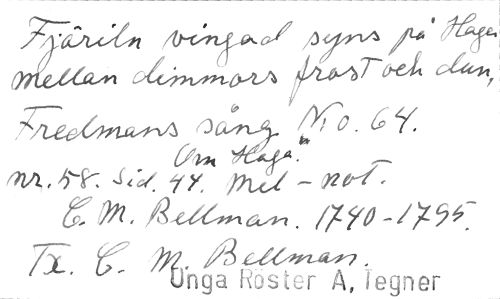 Fjäriln vingad syns på Haga
mellan dimmors frost och dun,
Fredmans sång No. 64.
Om Haga."
nr. 58. Sid. 44. Mel - not.
C. M. Bellman. 1740-1795.
Tx. C. M. Bellman.
Unga Röster A, Tegner